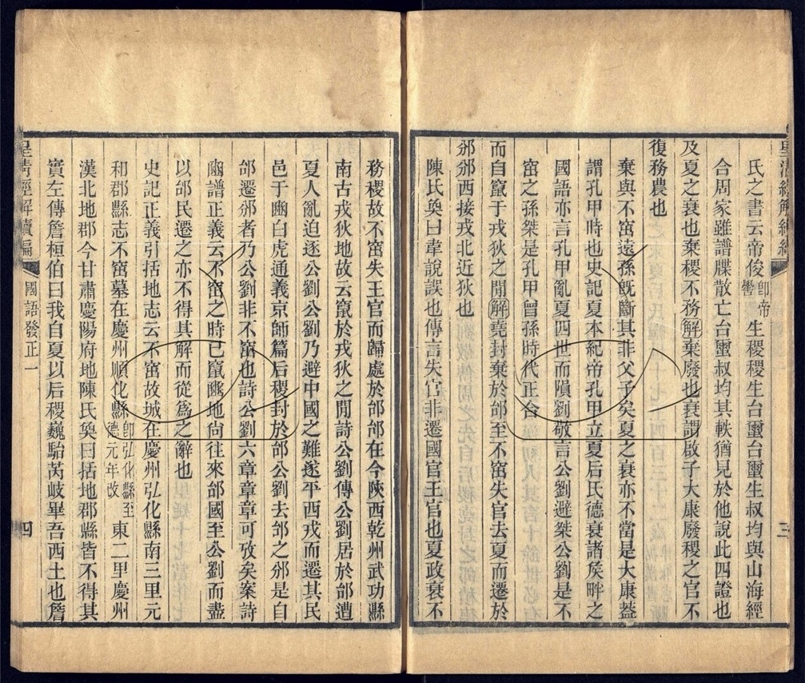 氏之書云帝俊卽帝嚳生稷稷生台璽台璽生叔均與山海經
合周家雖譜牒散亡台璽叔均其軼猶見於他說此四證也
及夏之衰也棄稷不務解棄廢也衰謂啟子大康廢稷之官不
復務農也
棄與不窋遠孫旣斷其非父子矣夏之衰亦不當是大康葢
謂孔甲時也史記夏本紀帝孔甲立夏后氏德衰諸矦畔之
國語亦言孔甲亂夏四世而隕劉敬言公劉避桀公劉是不
窋之孫桀是孔甲曾孫時代正合
而自竄于戎狄之閒解堯封棄於邰至不窋失官去夏而遷於
邠邠西接戎北近狄也
陳氏奐曰韋說誤也傳言失官非遷國官王官也夏政衰不
三
皇淸經解續編
國語發正一
四
務稷故不窋失王官而歸處於邰邰在今陝西乾州武功縣
南古戎狄地故云竄於戎狄之閒詩公劉傳公劉居於邰遭
夏人亂迫逐公劉公劉乃避中國之難遂平西戎而遷其民
邑于豳白虎通義京師篇后稷封於邰公劉去邰之邠是自
邰遷邠者乃公劉非不窋也詩公劉六章章章可攷矣案詩
豳譜正義云不窋之時已竄豳地尙往來邰國至公劉而盡
以邰民遷之亦不得其解而從爲之辭也
史記正義引括地志云不窋故城在慶州弘化縣南三里元
和郡縣志不窋墓在慶州順化縣卽弘化縣至德元年改東二里慶州
漢北地郡今甘肅慶陽府地陳氏奐曰括地郡縣皆不得其
實左傳詹桓伯曰我自夏以后稷巍駘芮岐畢吾西土也詹